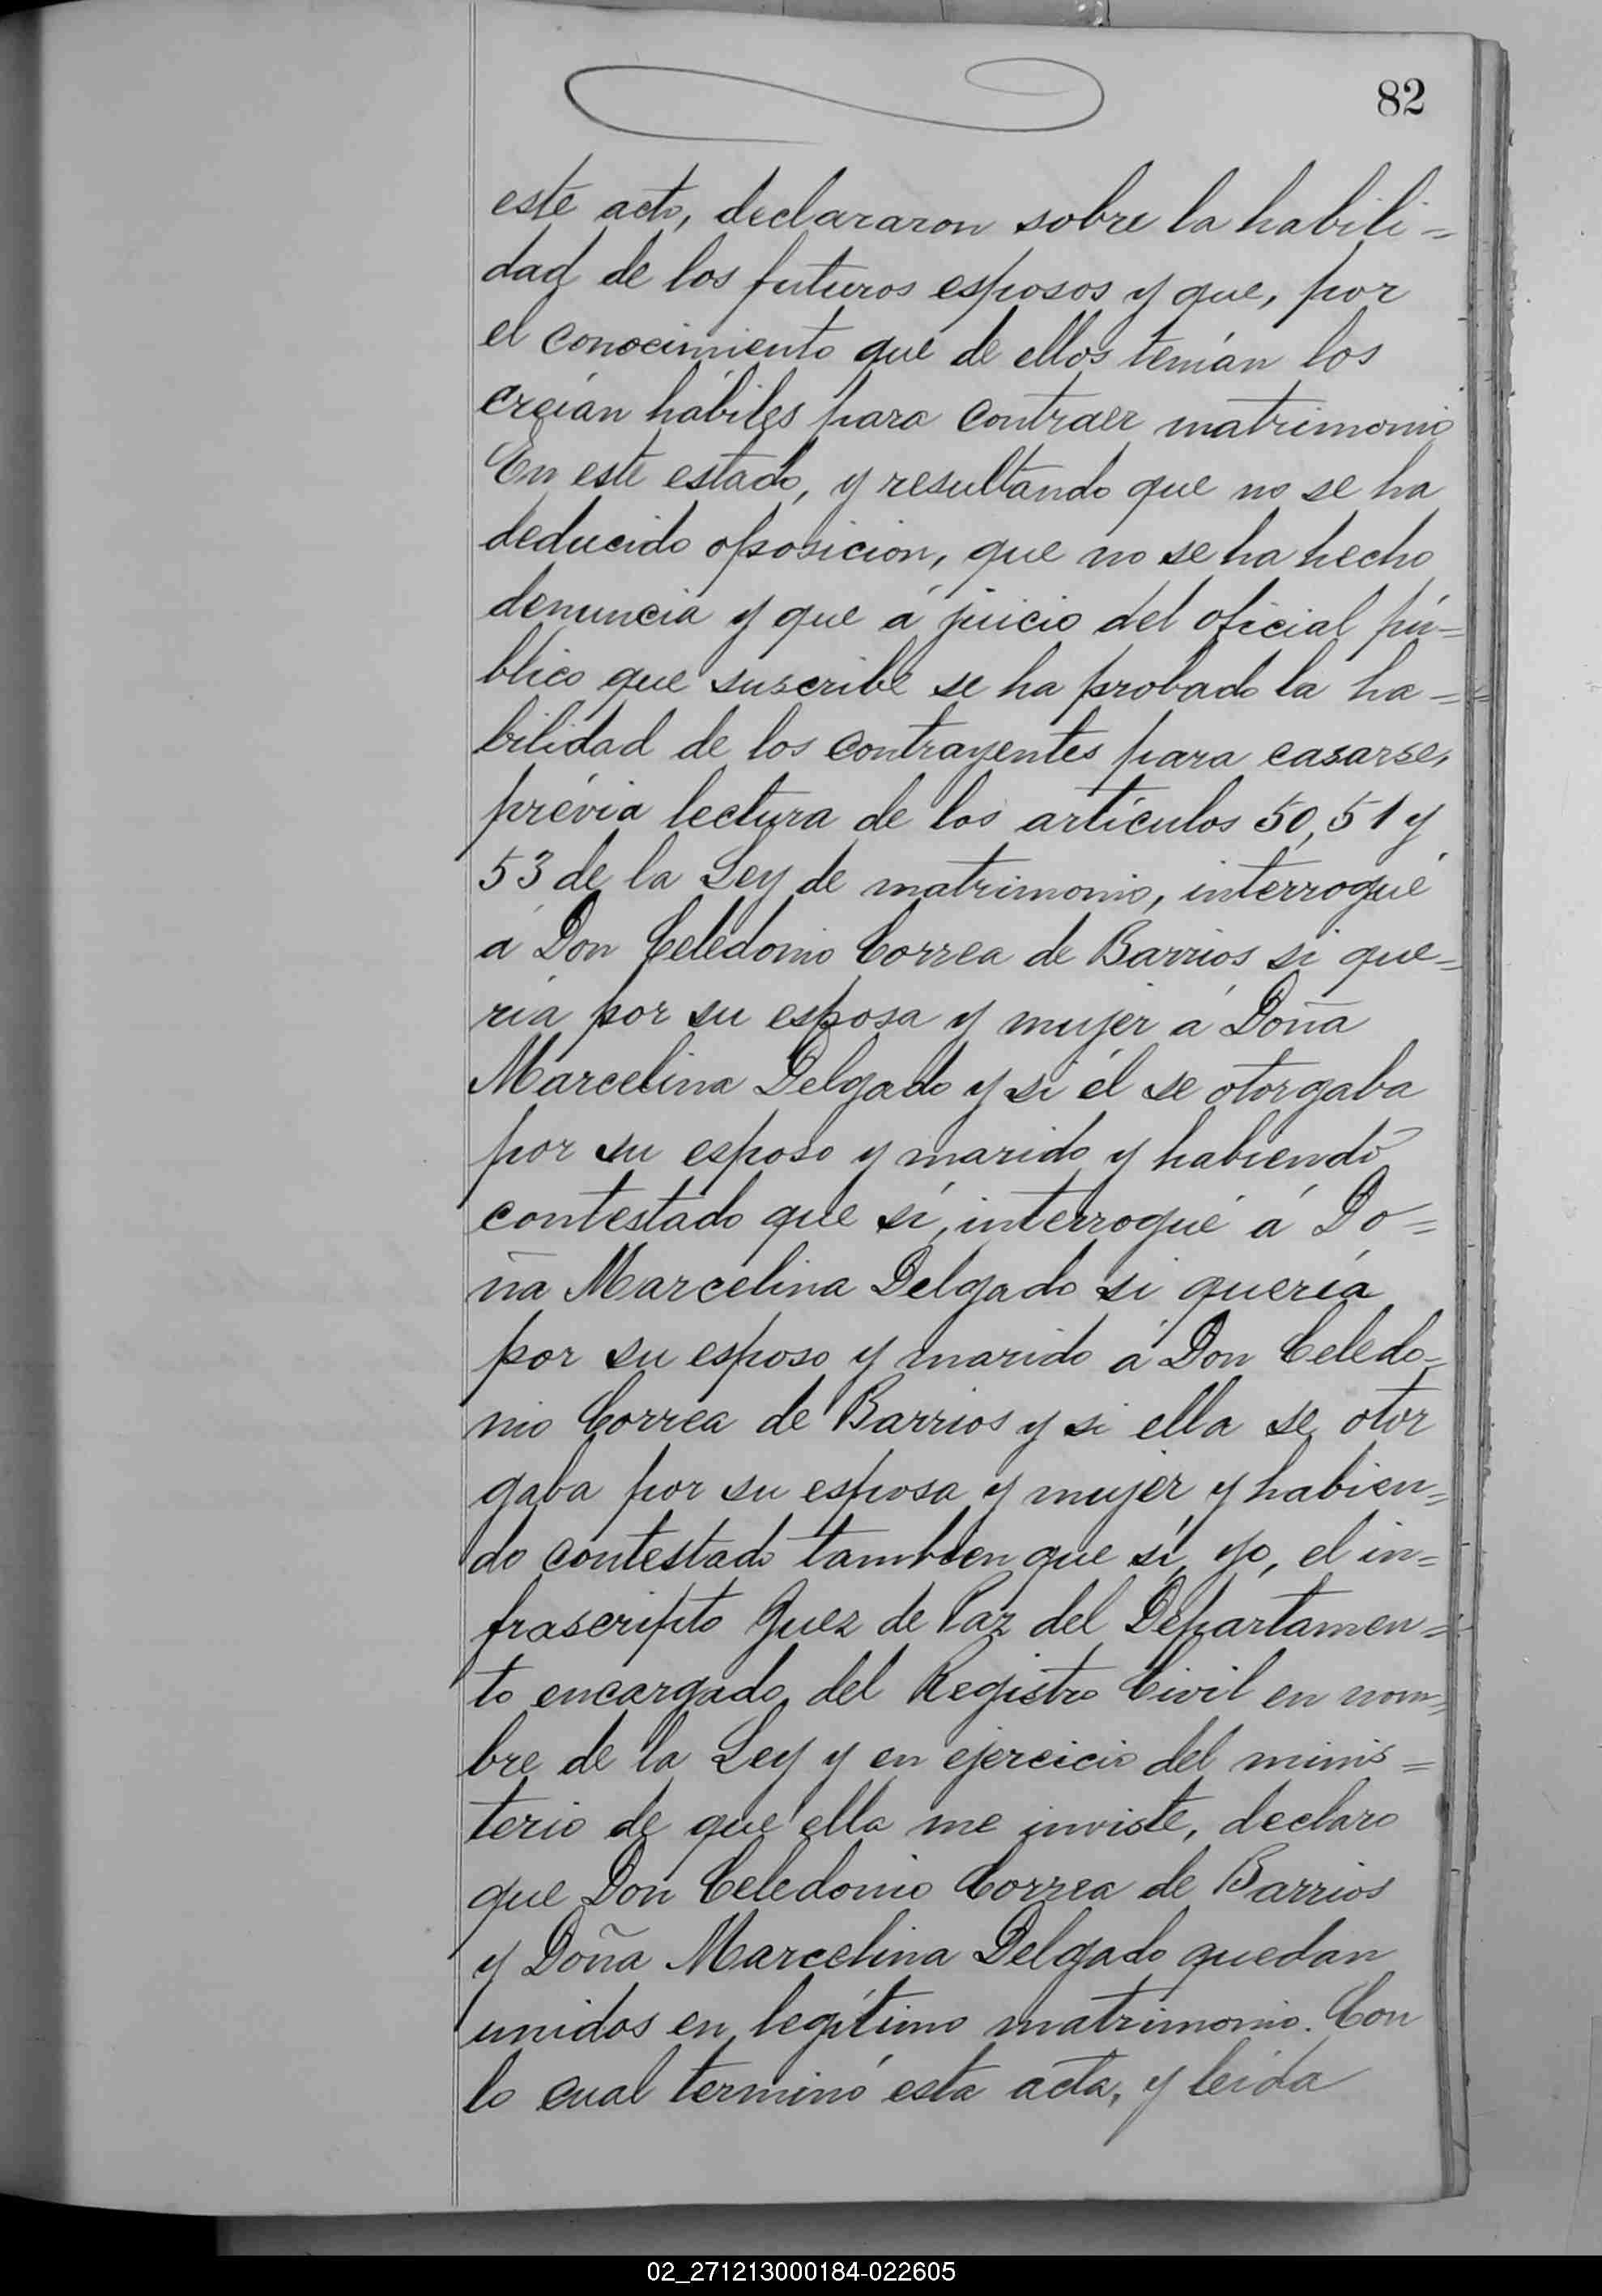 82
este acto, declararon sobre la habili=
dad de los futuros esposos y que, por
el conocimiento que de ellos tenían los
creían hábiles para contraer matrimonio
En este estado, y resultando que no se ha
deducido oposicion, que no se ha hecho
denuncia y que á juicio del oficial pú=
blico que suscribe se ha probado la ha=
bilidad de los contrayentes para casarse,
prévia lectura de los artículos 50, 51 y
53 de la Ley de matrimonio, interrogué
á Don Celedonio Correa de Barrios si que=
ría por su esposa y mujer á Doña
Marcelina Delgado y si él se otorgaba
por su esposo y marido y habiendo
contestado que sí, interrogué á Do=
ña Marcelina Delgado si quería
por su esposo y marido á Don Celedo=
nio Correa de Barrios y si ella se otor
gaba por su esposa y mujer y habien=
do contestado tambien que sí, yo, el in=
frascripto Juez de Paz del Departamen=
to encargado del Registro Civil en nom=
bre de la Ley y en ejercicio del minis=
terio de que ella me inviste, declaro
que Don Celedonio Correa de Barrios
y Doña Marcelina Delgado quedan
unidos en legítimo matrimonio. Con
lo cual terminó esta acta, y leída
02_271213000184-022605